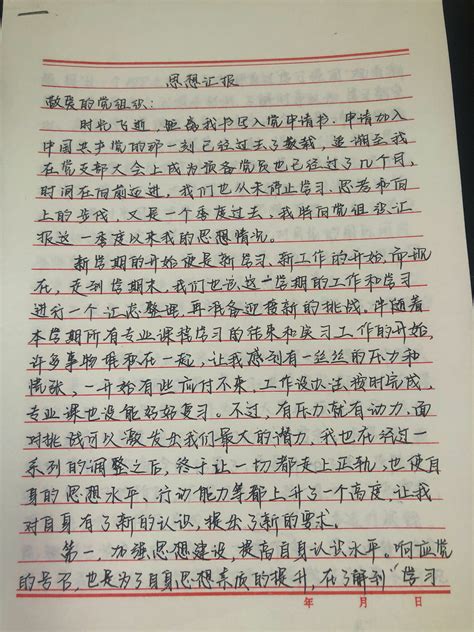 思想汇报
敬爱的党组织：
时光飞逝，距离我书写入党申请书、申请加入
中国共产党的那一刻已经过去了数载，追溯至我
在党支部大会上成为预备党员也已经过了几个月，
时间在向前迈进，我们也从未停止学习、思考和向
上的步伐，又是一个季度过去，我将向党组织汇
报这一季度以来我的思想情况。
新学期的开始便是新学习、新工作的开始，而现
在，走到学期末，我们也该这一学期的工作和学习
进行一个汇总整理，再准备迎接新的挑战。伴随着
本学期所有专业课程学习的结束和实习工作的开始，
许多事物堆积在一起，让我感到有一丝丝的压力和
慌张，一开始有些应付不来，工作没办法按时完成，
专业课也没能好好复习。不过，有压力就有动力，面
对挑战可以激发出我们最大的潜力，我也在经过一
系列的调整之后，终于让一切都走上正轨，也使自
身的思想水平、行动能力等都上升了一个高度，让我
对自身有了新的认识，提出了新的要求。
第一，加强思想建设，提高自身认识水平。响应党
的号召，也是为了自身思想素质的提升，在了解到“学习
年 月 日